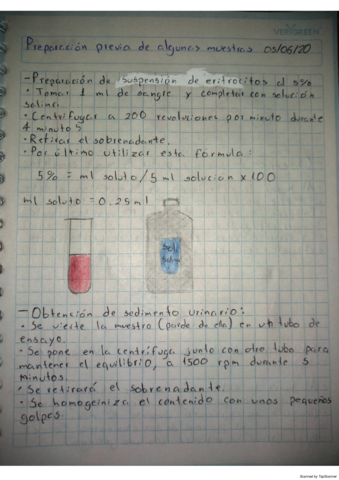 VERYGREEN
Preparación previa de algunas muestras 05/06/20
-Preparación de suspensión de eritrocitos al 5%
• Tomar 1 ml de sangre y completar con solución
salina.
• Centrifugar a 200 revoluciones por minuto durante
4 minutos.
• Retirar el sobrenadante.
• Por último utilizar esta fórmula:
5% = ml soluto / 5 ml solucion x 100
ml soluto = 0.25 ml
Sol.
Salina
- Obtención de sedimento urinario:
• Se vierte la muestra (parte de ella) en un tubo de
ensayo.
• Se pone en la centrífuga junto con otro tubo para
mantener el equilibrio, a 1500 rpm durante 5
minutos.
• Se retirará el sobrenadante.
• Se homogeiniza el contenido con unos pequeños
golpes.
Scanned by TapScanner